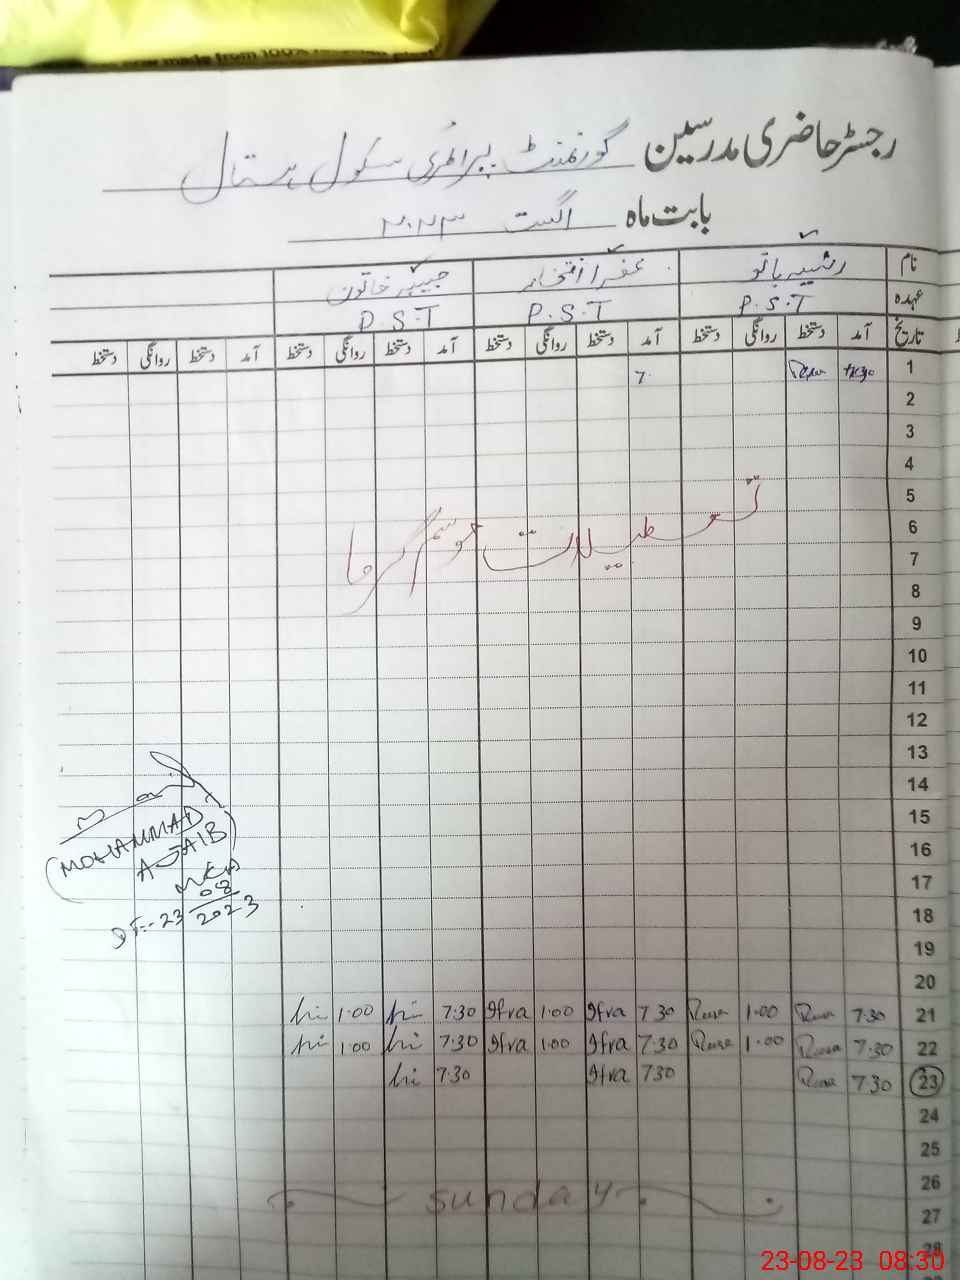 made from 100%
رجسٹر حاضری مدرسین گورنمنٹ پرائمری سکول ہستال
بابت ماہ اگست ۲۰۲۳
نام رشیدہ بانو عفرا افتخار حبیبہ خاتون
عہدہ P.S.T P.S.T P.S.T
تاریخ آمد دستخط روانگی دستخط آمد دستخط روانگی دستخط آمد دستخط روانگی دستخط آمد دستخط روانگی دستخط
1 7.
2
3
4
5
تعطیلات موسم گرما
6
7
8
9
10
11
12
13
14
15
16
17
18
19
20
(MOHAMMAD
AJAIB)
DT:-23 08 2023
21 7.30 1.00 7.30 Ifra 1.00 Ifra 7.30 1.00
22 7.30 1.00 7.30 Ifra 1.00 Ifra 7.30 1.00
23 7.30 7.30 Ifra 7.30
24
25
26
sunday
27
28
23-08-23 08:30